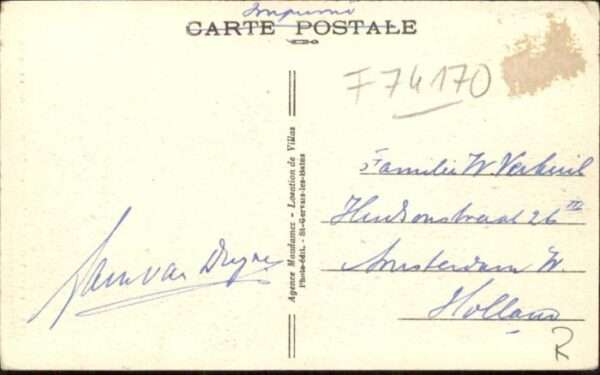 Imprimé
CARTE POSTALE
F 74170
Agence Mandamez - Location de Villas
Photo-édit. - St-Gervais-les-Bains
Familie W. Verkuil
Hudsonstraat 26 III
Amsterdam W.
Holland
van
R